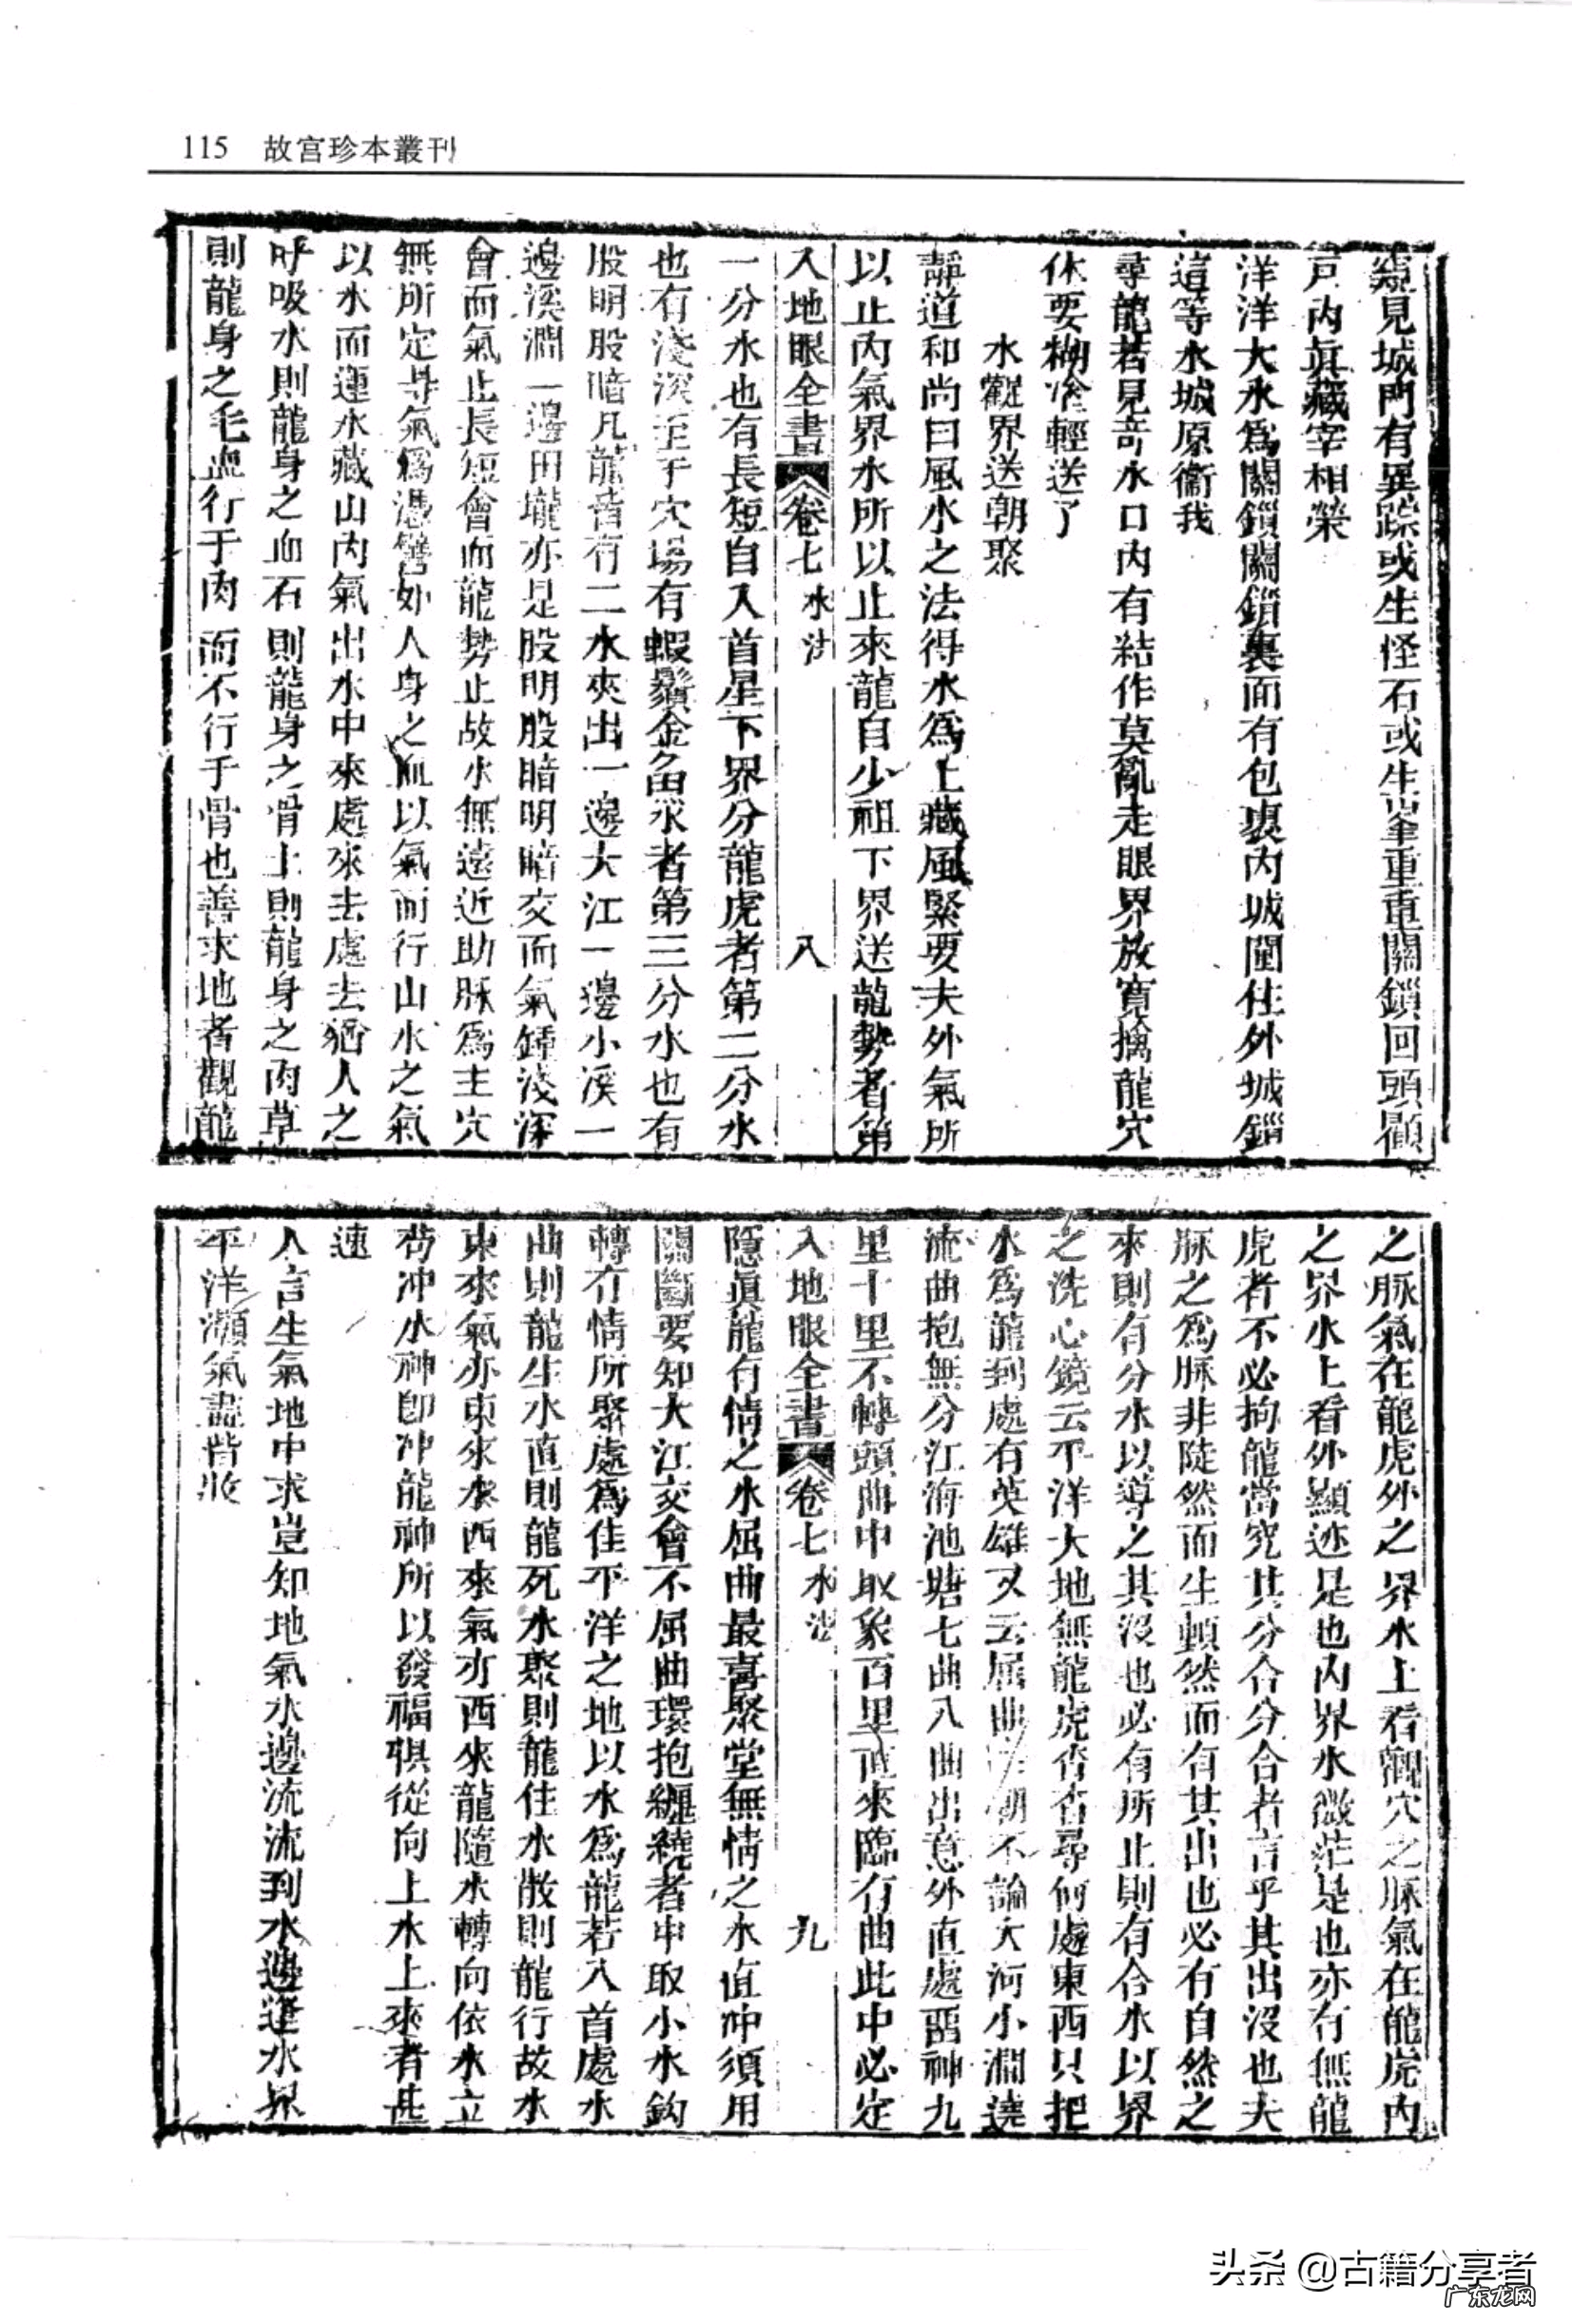 115 故宫珍本叢刊
窺見城門有異踪或生怪石或生峯重重關鎖回頭顧
戸内眞藏宰相榮
洋洋大水爲關鎖關鎖裏面有包裹内城圍住外城鎦
這等水城原衞我
尋龍若見奇水口内有結作莫亂走眼界放寬擒龍穴
休要糊塗輕送了
水觀界送朝聚
靜道和尚曰風水之法得水爲上藏風緊要夫外氣所
以止内氣界水所以止來龍自少祖下界送龍勢者第
入地眼全書 卷七 水法 八
一分水也有長短自入首星下界分龍虎者第二分水
也有淺深至于穴場有蝦鬚金魚水者第三分水也有
股明股暗凡龍皆有二水夾出一邊大江一邊小溪一
邊溪澗一邊田壠亦是股明股暗明暗交而氣鍾淺深
會而氣止長短會而龍勢止故水無遠近助脉爲主穴
無所定尋氣爲憑譬如人身之血以氣而行山水之氣
以水而運水藏山内氣出水中來處來去處去猶人之
呼吸水則龍身之血石則龍身之骨土則龍身之肉草
則龍身之毛血行于肉而不行于骨也善求地者觀龍
之脉氣在龍虎外之界水上看觀穴之脉氣在龍虎内
之界水上看外顯迹是也内界水微茫是也亦有無龍
虎者不必拘龍當究其分合分合者言乎其出沒也夫
脉之爲脉非陡然而生頓然而有其出也必有自然之
來則有分水以導之其沒也必有所止則有合水以界
之洗心鏡云平洋大地無龍虎杳杳尋何處東西只把
水爲龍到處有英雄又云屈曲 潮不論大河小澗遶
流曲抱無分江海池塘七曲入曲出意外直處惡神九
里十里不轉頭曲中取象百里直來臨有曲此中必定
入地眼全書 卷七 水法 九
隱眞龍有情之水屈曲最喜聚堂無情之水直冲須用
關斷要知大江交會不屈曲環抱纏繞者串取小水鈎
轉有情所聚處爲佳平洋之地以水爲龍若入首處水
曲則龍生水直則龍死水聚則龍住水散則龍行故水
東來氣亦東來水西來氣亦西來龍隨水轉向依水立
苟冲水神卽冲龍神所以發福俱從向上水上來者甚
速
人言生氣地中求豈知地氣水邊流流到水邊逢水界
平洋瀕氣盡皆收
头条@古籍分享者
广东龙网